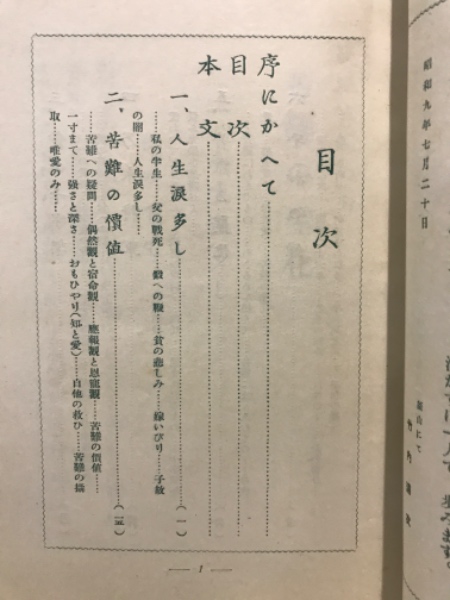 昭和九年七月二十日
目次
序にかへて
目次
本文
一、人生淚多し……(一)
私の半生……父の戰死……貧の悲しみ……嫁いびり……子故
の闇……人生淚多し……
二、苦難の價値……(一五)
苦難への疑問……偶然觀と宿命觀……應報觀と恩寵觀……苦難の價値……
一寸まて……强さと深さ……おもひやり(知と愛)……自他の救ひ……苦難の攝
取……唯愛のみ……
— 1 —